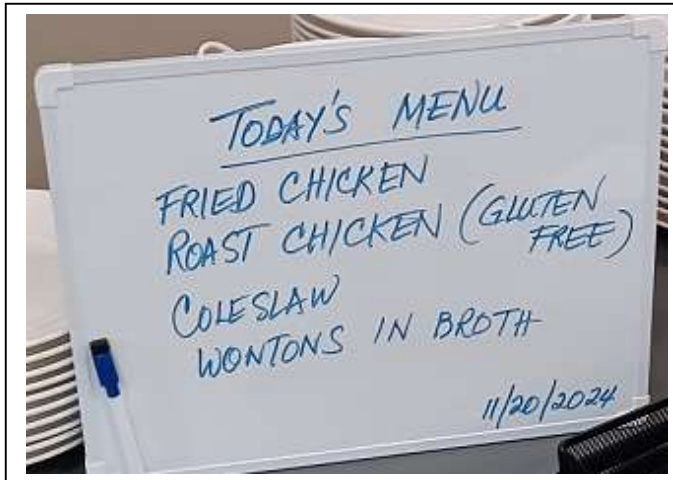 TODAY'S MENU
FRIED CHICKEN
ROAST CHICKEN (GLUTEN
FREE)
COLESLAW
WONTONS IN BROTH
11/20/2024